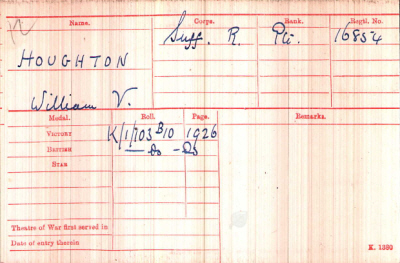 Name. Corps. Rank. Regtl. No.
HOUGHTON Suff. R. Pte. 16854
William V.
Medal. Roll. Page. Remarks.
VICTORY K/1/103 B10 1926
BRITISH — Do — Do
STAR
Theatre of War first served in
Date of entry therein
K. 1380